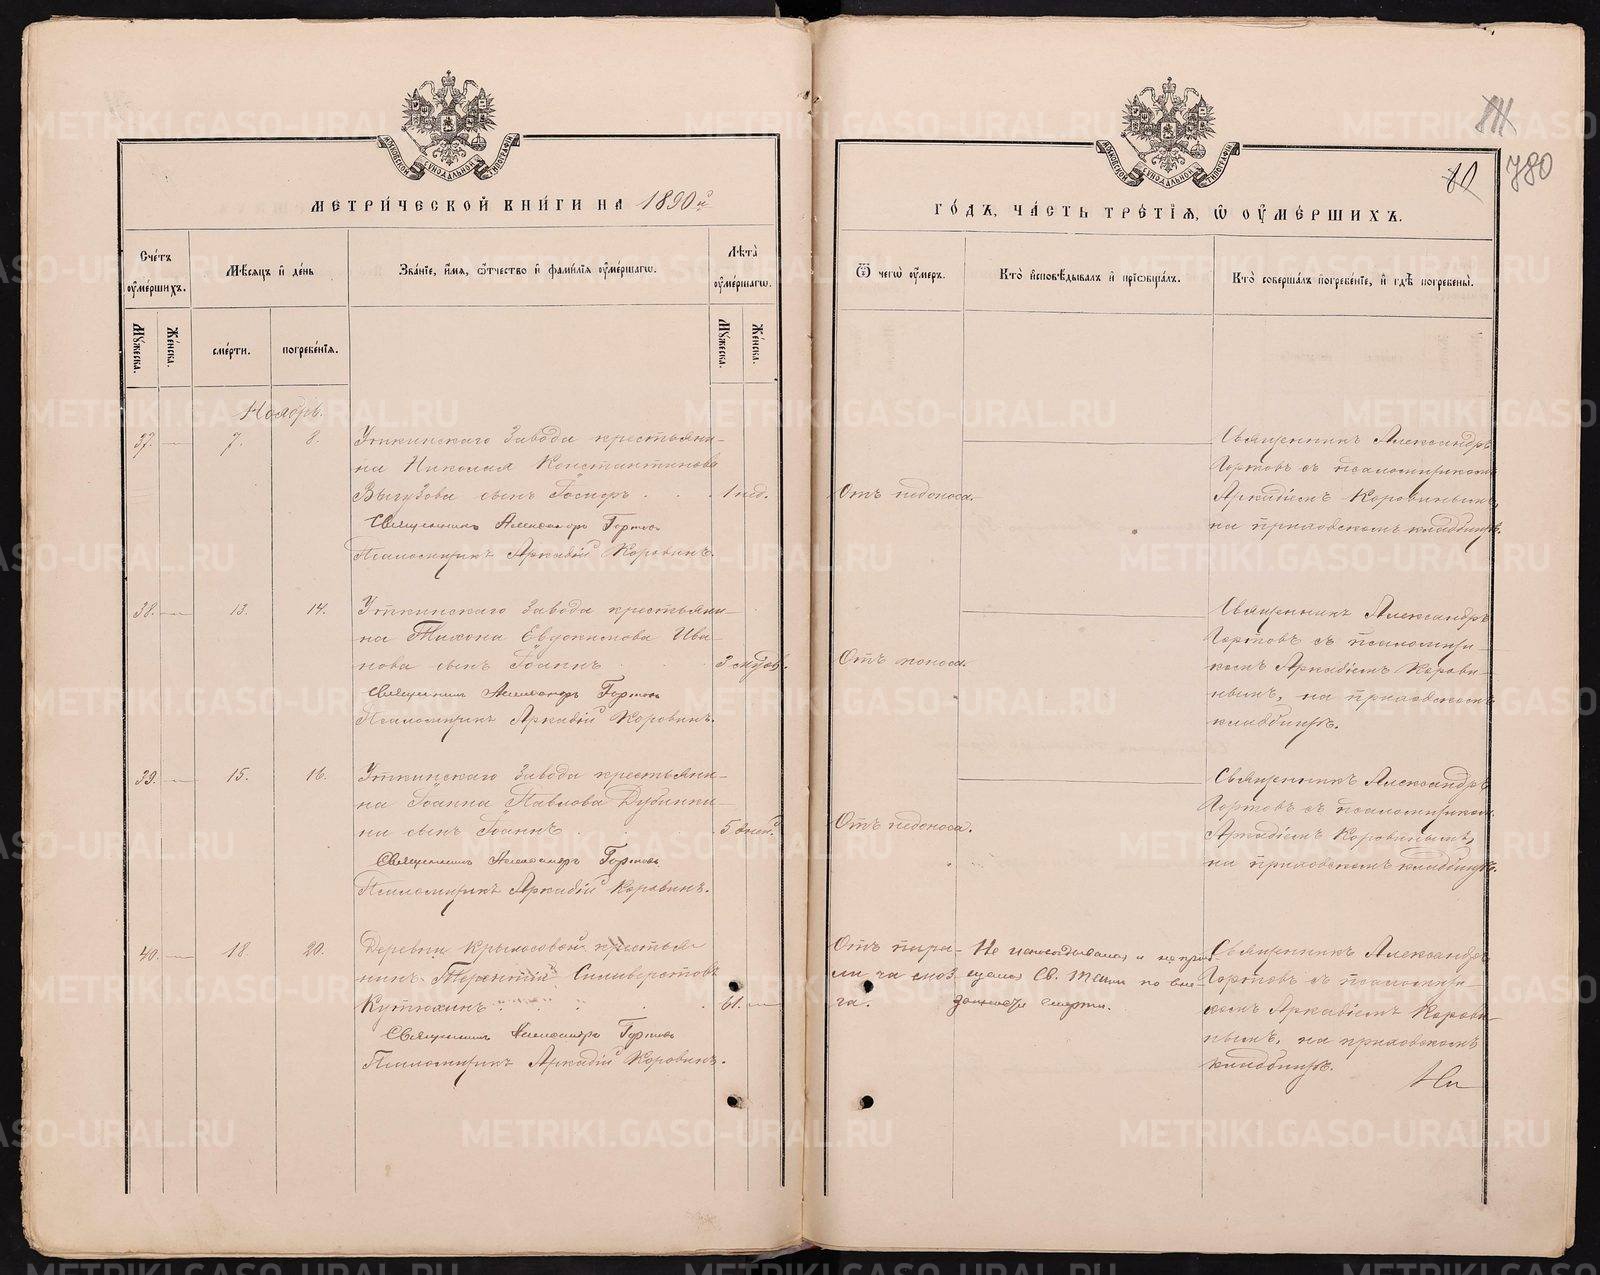 МЕТРИ́ЧЕСКОЙ КНИ́ГИ НА 1890й
Сче́тъ ᲂу҆ме́ршихъ.
Мѣ́сяцъ и҆ де́нь
Зва́нїе, и҆́мя, ѻ҆́тчество и҆ фами́лїя ᲂу҆ме́ршагѡ.
Лѣ́та ᲂу҆ме́ршагѡ.
Му́жеска.
Же́нска.
сме́рти.
погребе́нїя.
Му́жеска.
Же́нска.
Ноябрь.
37. — 7. 8. Уткинскаго Завода крестьяни-
на Николая Константинова
сынъ 1 нед.
Священникъ Александръ Гортовъ
Псаломщикъ Аркадій Коровинъ.
38. — 13. 14. Уткинскаго Завода крестьяни-
на Тихона Евдокимова Ива-
нова сынъ Іоаннъ
Священникъ Александръ Гортовъ
Псаломщикъ Аркадій Коровинъ.
39. — 15. 16. Уткинскаго Завода крестьяни-
на Іоанна Павлова Дубинки-
на сынъ Іоаннъ 5 дней.
Священникъ Александръ Гортовъ
Псаломщикъ Аркадій Коровинъ.
40. — 18. 20. Деревни Крылосовой крестья-
нинъ Терентій Силиверстовъ
Кутюхинъ 61. —
Священникъ Александръ Гортовъ
Псаломщикъ Аркадій Коровинъ.
780
ГО́ДЪ, ЧА́СТЬ ТРЕ́ТЇЯ, Ѡ҆ ОУ҆МЕ́РШИХЪ.
Ѿ чегѡ̀ ᲂу҆́меръ.
Кто̀ и҆сповѣ́дывалъ и҆ прїѡбща́лъ.
Кто̀ соверша́лъ погребе́нїе, и҆ гдѣ̀ погребены̀.
Отъ недоноса.
Священникъ Александръ
Гортовъ съ псаломщикомъ
Аркадіемъ Коровинымъ,
на приходскомъ кладбищѣ.
Отъ поноса.
Священникъ Александръ
Гортовъ съ псаломщи-
комъ Аркадіемъ Корови-
нымъ, на приходскомъ
кладбищѣ.
Отъ недоноса.
Священникъ Александръ
Гортовъ съ псаломщикомъ
Аркадіемъ Коровинымъ,
на приходскомъ кладбищѣ.
Отъ пара-
лича моз-
га.
Не исповѣдывался и не прі-
щался Св. Таинъ по вне-
запности смерти.
Священникъ Александръ
Гортовъ съ псаломщи-
комъ Аркадіемъ Корови-
нымъ, на приходскомъ
кладбищѣ.
METRIKI.GASO-URAL.RU